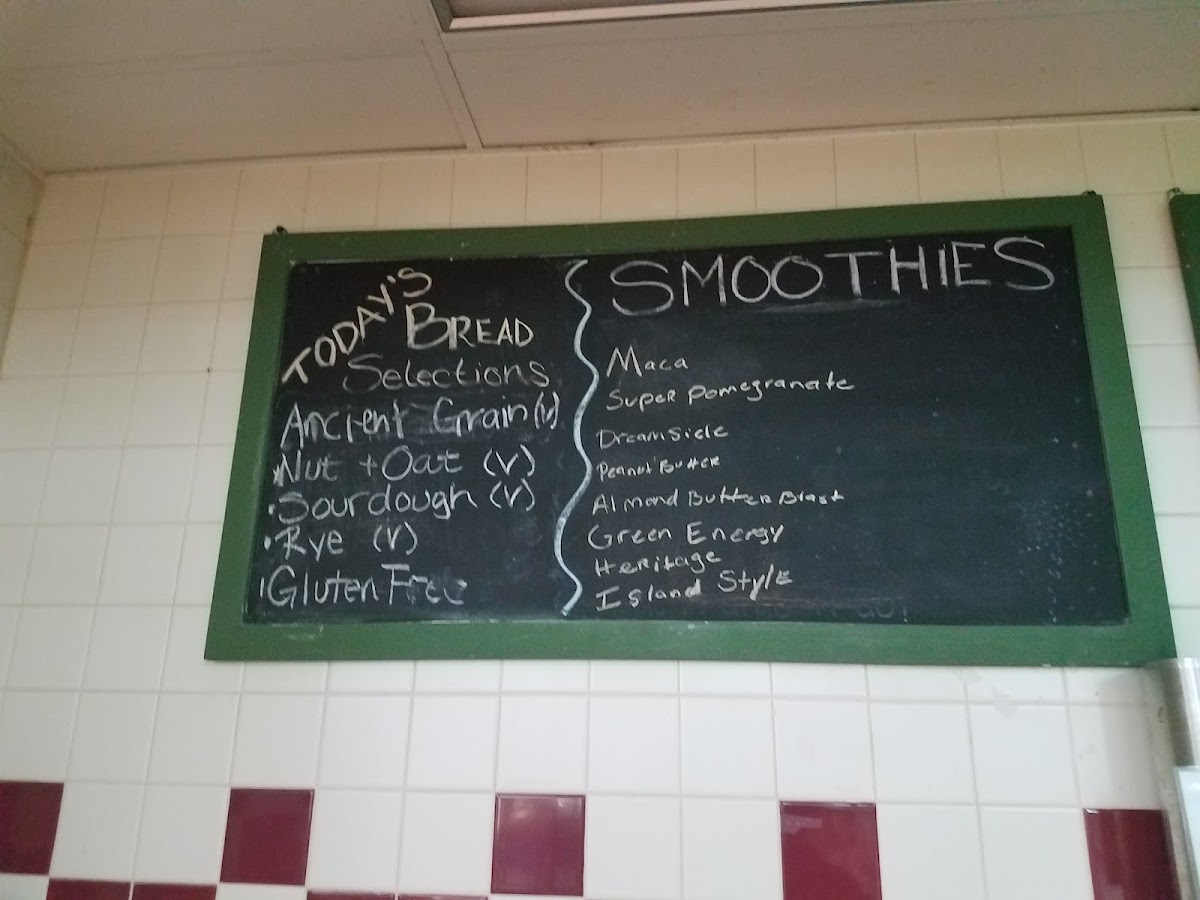 TODAY'S
BREAD
Selections
Ancient Grain (v)
·Nut + Oat (v)
·Sourdough (v)
·Rye (v)
·Gluten Free
SMOOTHIES
Maca
Super Pomegranate
Dreamsicle
Peanut Butter
Almond Butter Blast
Green Energy
Heritage
Island Style